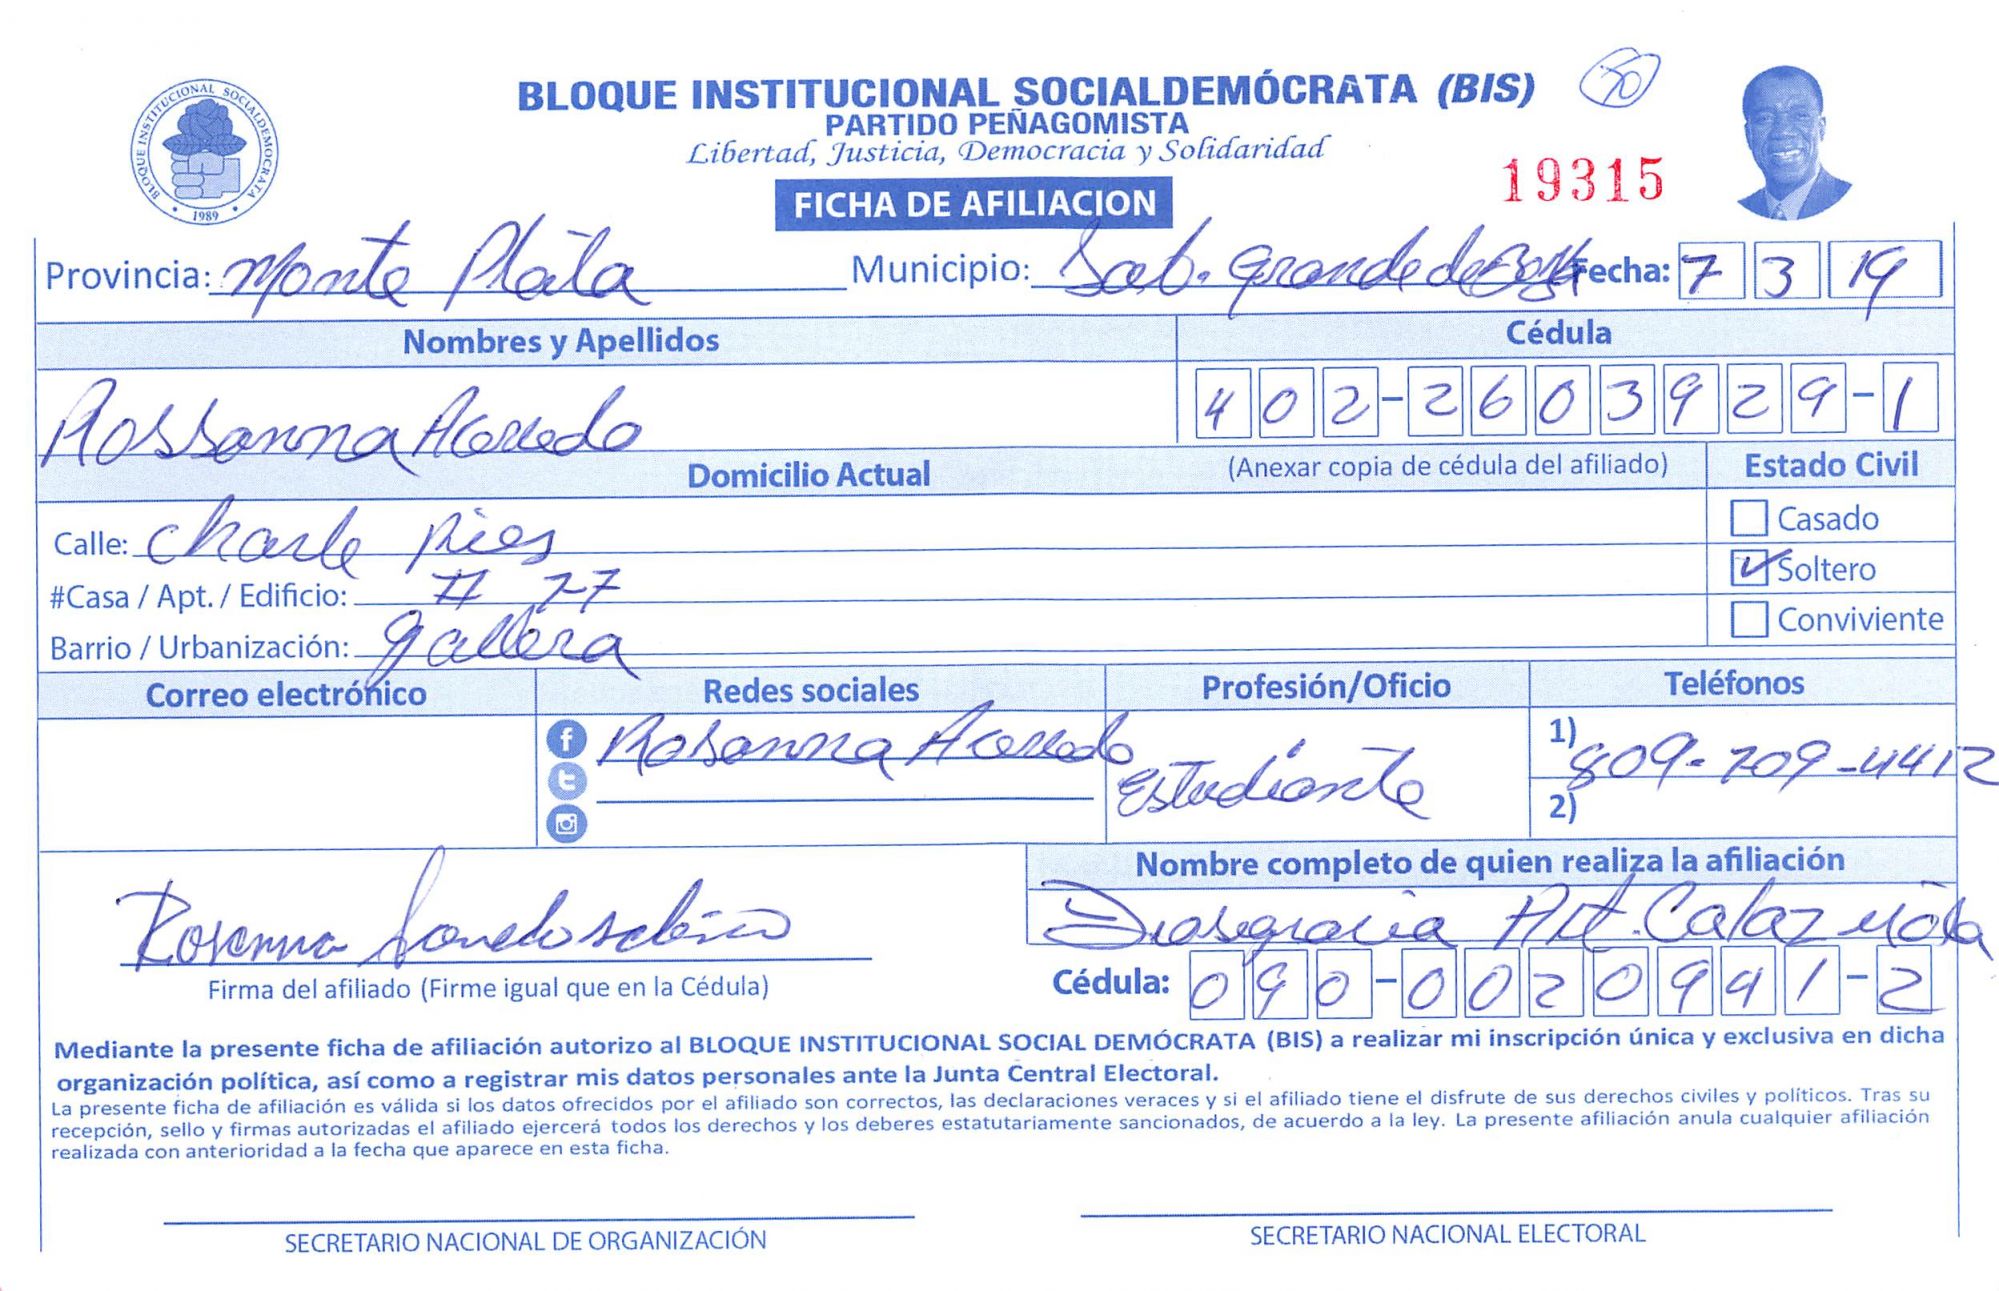 BLOQUE INSTITUCIONAL SOCIALDEMÓCRATA (BIS)
50
PARTIDO PEÑAGOMISTA
Libertad, Justicia, Democracia y Solidaridad
BLOQUE INSTITUCIONAL SOCIALDEMOCRATA
1989
19315
FICHA DE AFILIACION
Provincia: Monte Plata Municipio: Sab. Grande de Boya Fecha: 7 3 19
Nombres y Apellidos Cédula
Rossanna Acevedo 402-2603929-1
Domicilio Actual (Anexar copia de cédula del afiliado) Estado Civil
Calle: Charle Pies Casado
#Casa / Apt. / Edificio: # 77 Soltero
Barrio / Urbanización: gallera Conviviente
Correo electrónico Redes sociales Profesión/Oficio Teléfonos
Rosanna Acevedo Estudiante 1) 809-709-4412
2)
Nombre completo de quien realiza la afiliación
Rosanna
Diosgracia Alt. Calaz
Firma del afiliado (Firme igual que en la Cédula) Cédula: 090-0020941-2
Mediante la presente ficha de afiliación autorizo al BLOQUE INSTITUCIONAL SOCIAL DEMÓCRATA (BIS) a realizar mi inscripción única y exclusiva en dicha
organización política, así como a registrar mis datos personales ante la Junta Central Electoral.
La presente ficha de afiliación es válida si los datos ofrecidos por el afiliado son correctos, las declaraciones veraces y si el afiliado tiene el disfrute de sus derechos civiles y políticos. Tras su
recepción, sello y firmas autorizadas el afiliado ejercerá todos los derechos y los deberes estatutariamente sancionados, de acuerdo a la ley. La presente afiliación anula cualquier afiliación
realizada con anterioridad a la fecha que aparece en esta ficha.
SECRETARIO NACIONAL DE ORGANIZACIÓN SECRETARIO NACIONAL ELECTORAL